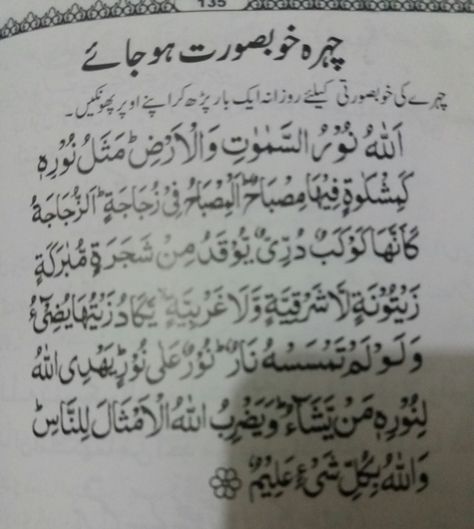 135
چہرہ خوبصورت ہو جائے
چہرے کی خوبصورتی کیلئے روزانہ ایک بار پڑھ کر اپنے اوپر پھونکیں۔
اَللّٰهُ نُوْرُ السَّمٰوٰتِ وَالْاَرْضِ ؕ مَثَلُ نُوْرِهٖ
كَمِشْكٰوةٍ فِيْهَا مِصْبَاحٌ ؕ اَلْمِصْبَاحُ فِيْ زُجَاجَةٍ ؕ اَلزُّجَاجَةُ
كَاَنَّهَا كَوْكَبٌ دُرِّيٌّ يُّوْقَدُ مِنْ شَجَرَةٍ مُّبٰرَكَةٍ
زَيْتُوْنَةٍ لَّا شَرْقِيَّةٍ وَّلَا غَرْبِيَّةٍ ۙ يَّكَادُ زَيْتُهَا يُضِيْٓءُ
وَلَوْ لَمْ تَمْسَسْهُ نَارٌ ؕ نُوْرٌ عَلٰى نُوْرٍ ؕ يَهْدِى اللّٰهُ
لِنُوْرِهٖ مَنْ يَّشَآءُ ؕ وَيَضْرِبُ اللّٰهُ الْاَمْثَالَ لِلنَّاسِ ؕ
وَاللّٰهُ بِكُلِّ شَيْءٍ عَلِيْمٌ